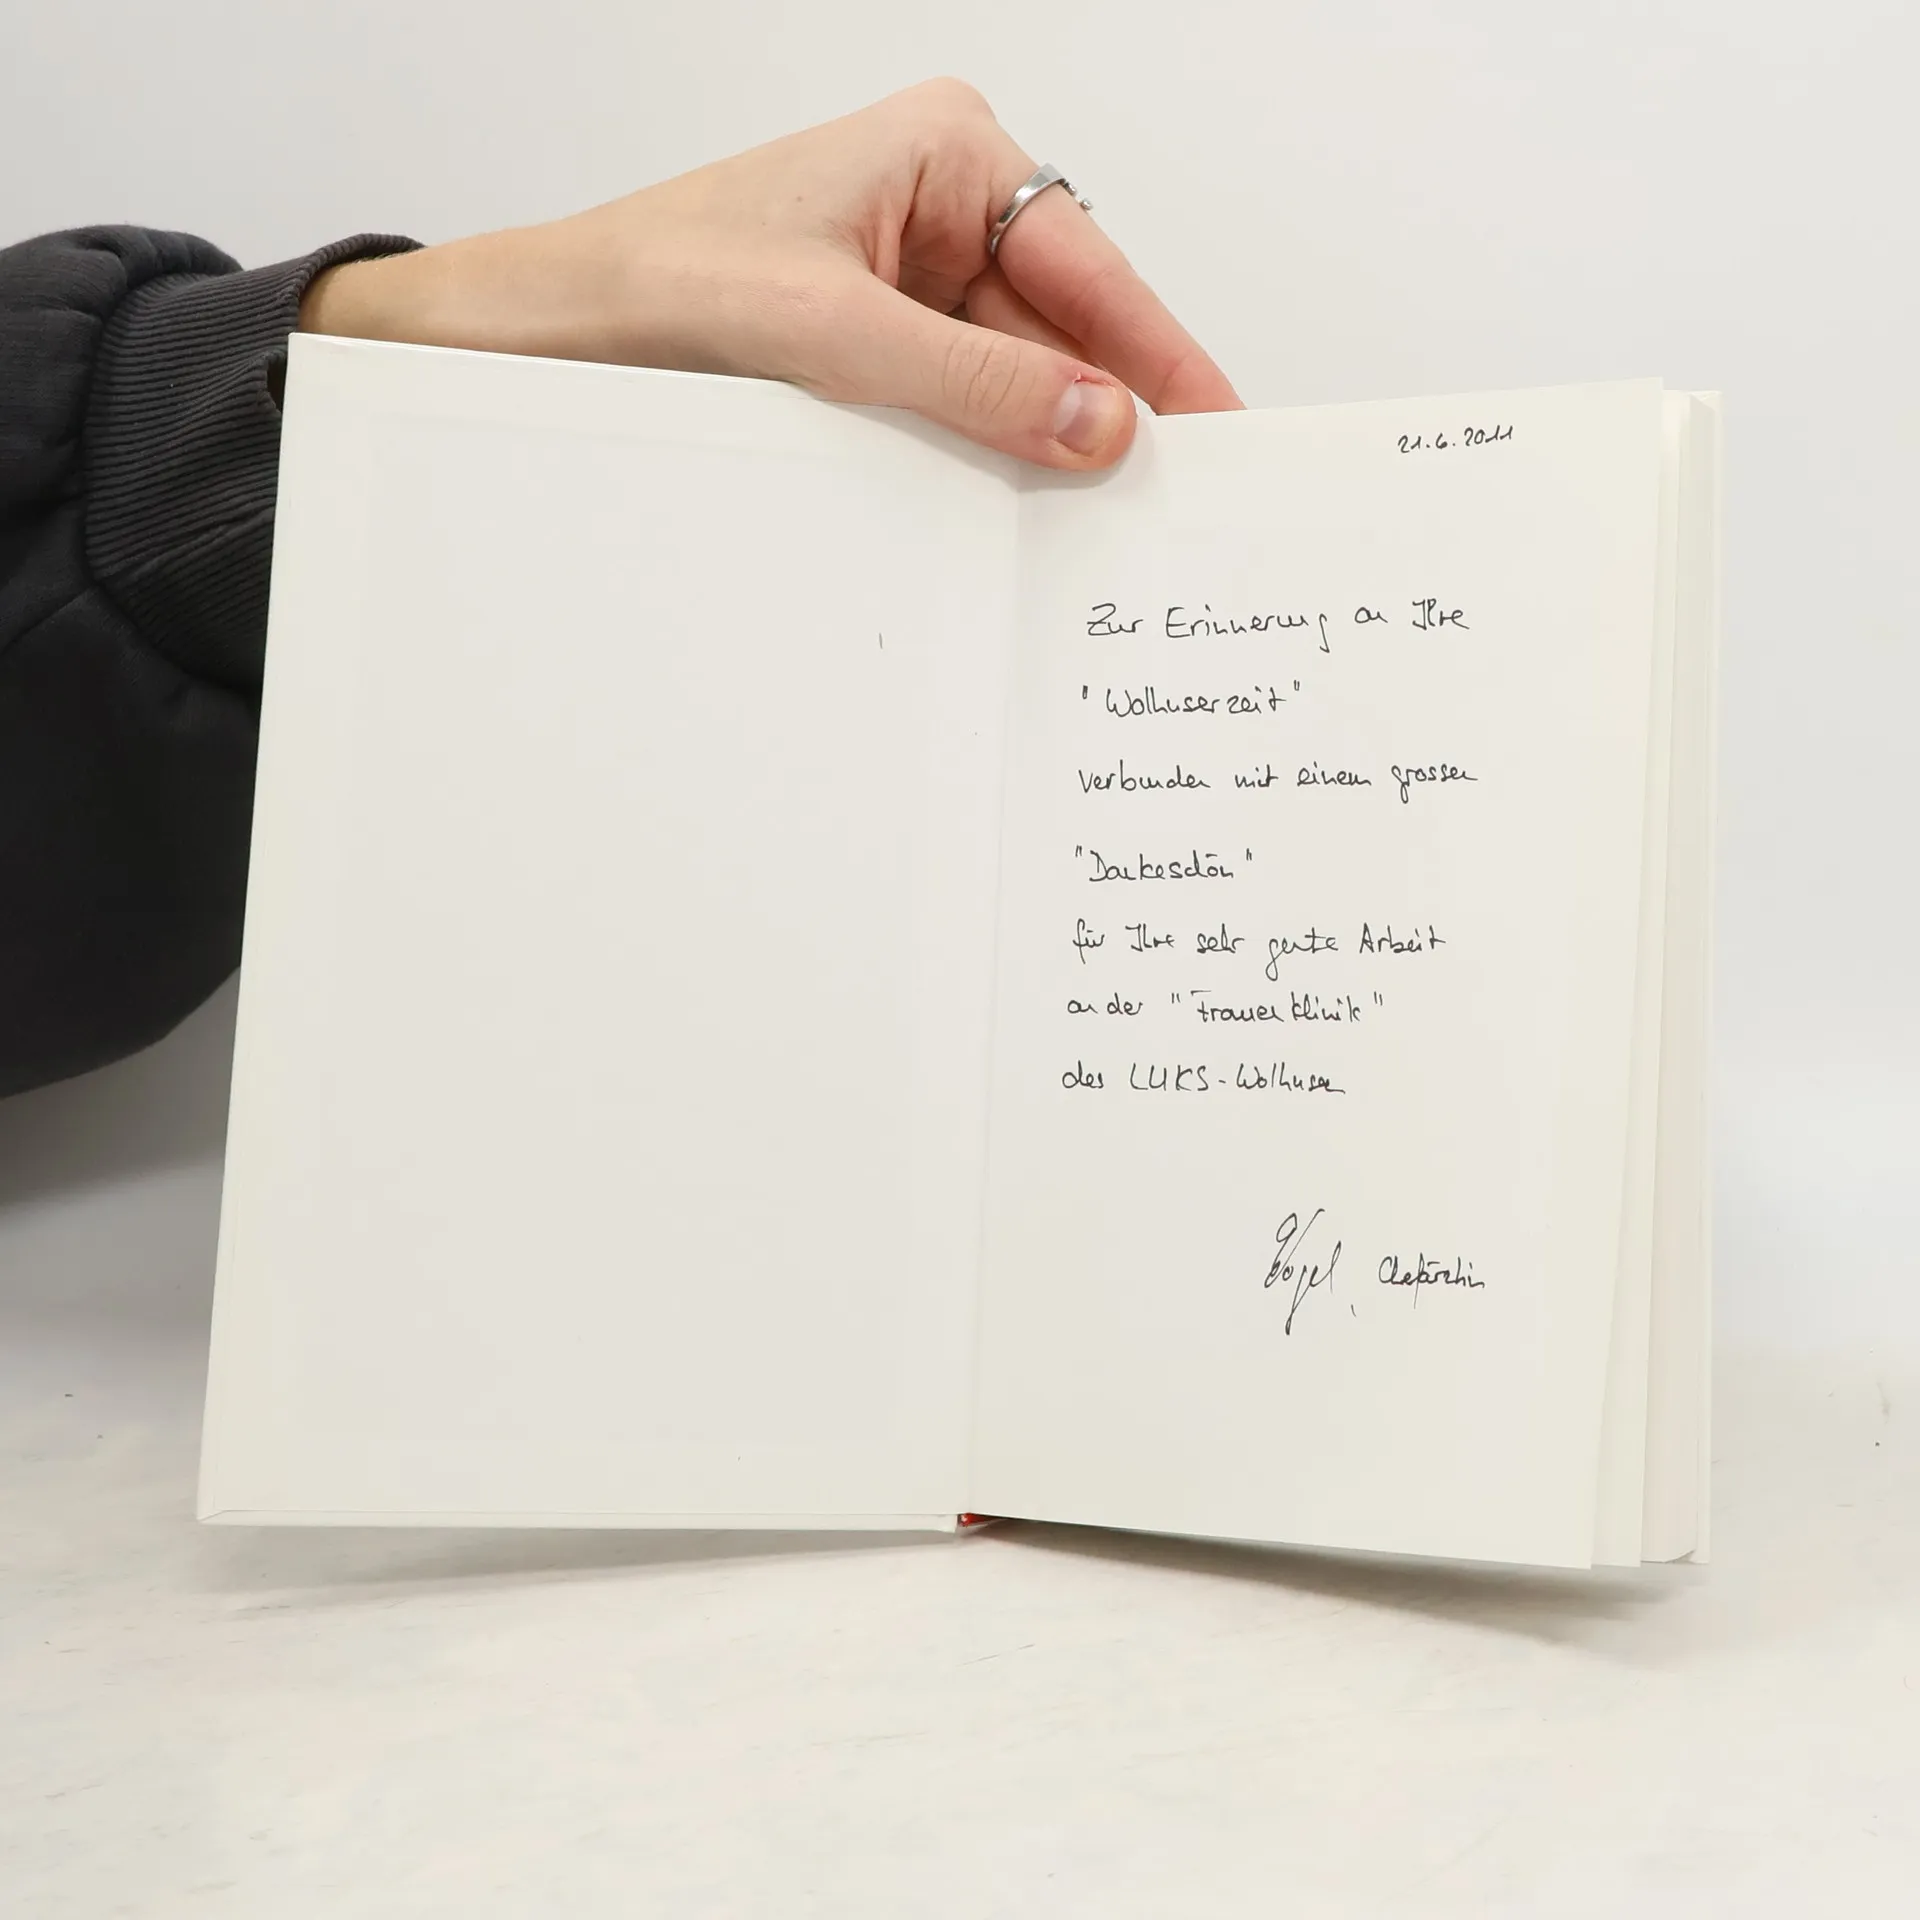 21.6.2011
Zur Erinnerung an Ihre
"Wolhuserzeit"
verbunden mit einem grossen
"Dankeschön"
für Ihre sehr gute Arbeit
an der "Frauenklinik"
des LUKS-Wolhusen
Vogel, Chefärztin